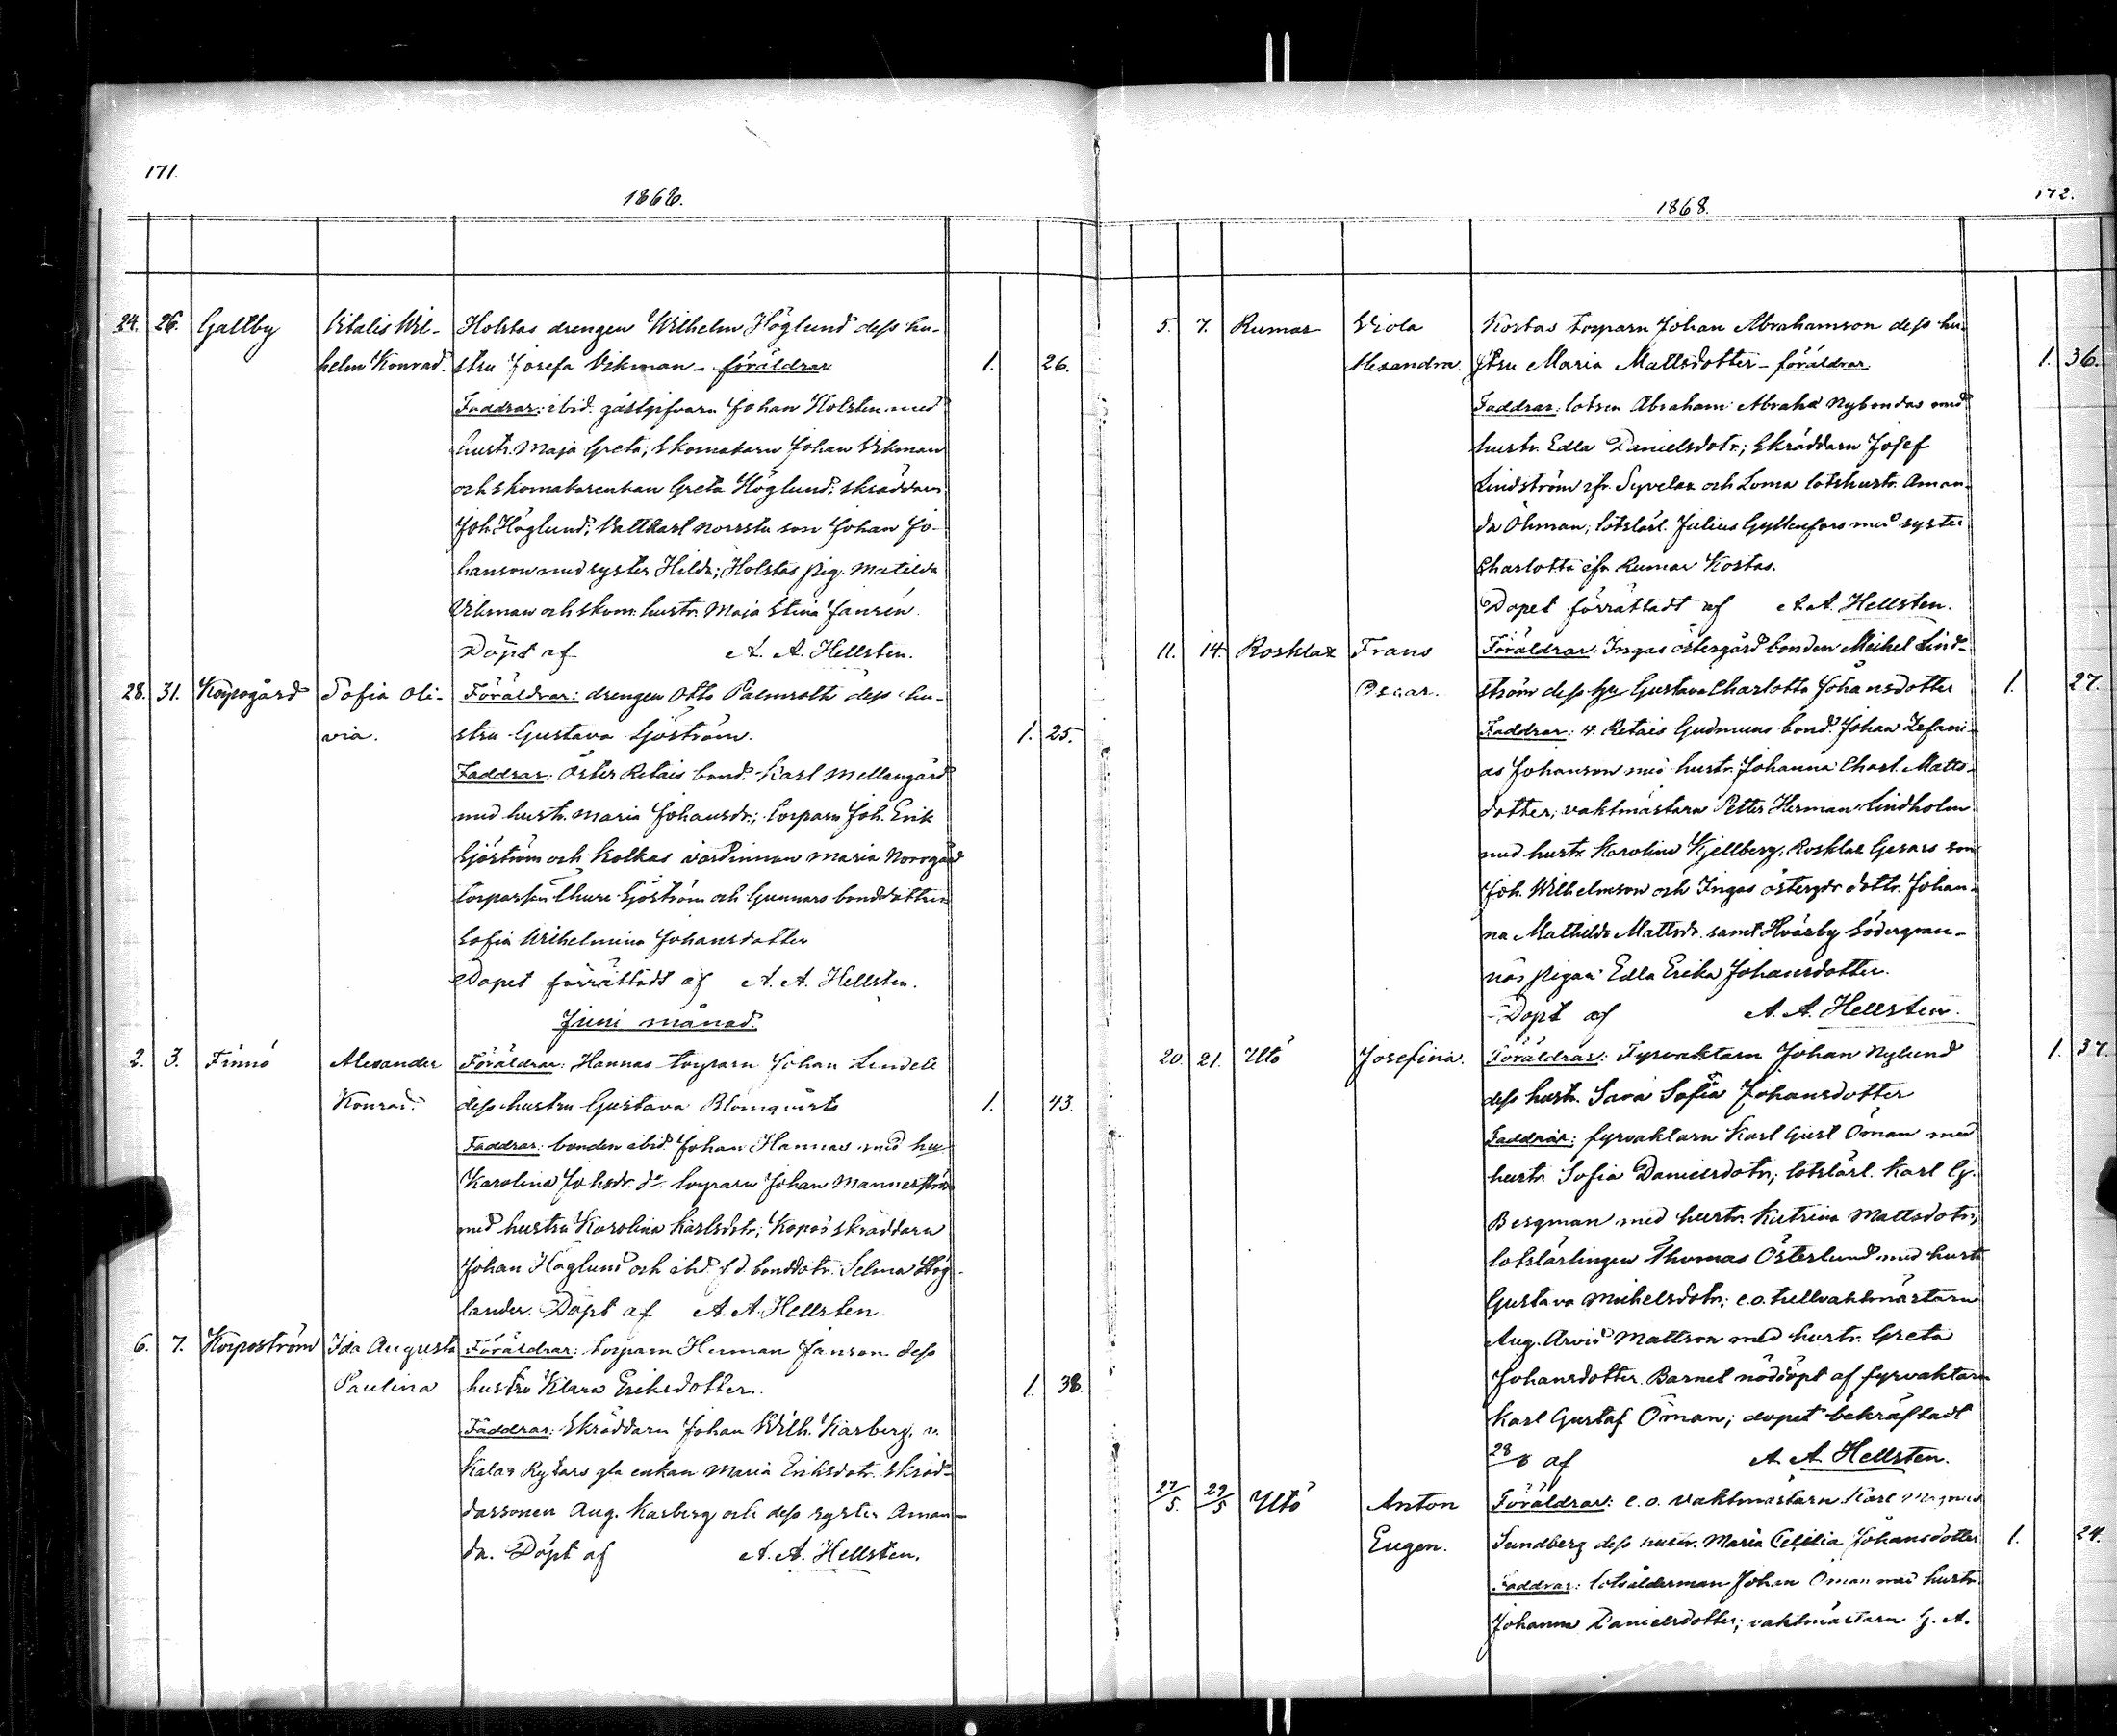 171.
1868.
24. 26. Galtby Vitalis Wil- Holstas drengen Wilhelm Höglund dess hu-
helm Konrad. stru Josefa Vikman - föräldrar 1. 26.
Faddrar: ibid. gästgifvarn Johan Holsten med
hustr. Maja Greta; skomakarn Johan Vikman
och skomakarenkan Greta Höglund; skräddarn
Joh. Höglund; Norrstu son Johan Jo-
hanson med syster Hilda; Holstas pig. Matilda
Vikman och skom. hustr. Maja Stina Jansén.
Döpt af A. A. Hellsten.
28. 31. Korpogård Sofia Oli- Föräldrar: drengen Otto Palmroth dess hu-
via. stru Gustava Sjöström. 1. 25.
Faddrar: Öster Retais bond. Karl Mellangård
med hustr. Maria Johansdr.; torparn Joh. Erik
Sjöström och Kolkas värdinnan Maria Norrgård
Thure Sjöström och Gunnars bonddottren
Sofia Wilhelmina Johansdotter
Dopet förrättadt af A. A. Hellsten.
Juni månad.
2. 3. Finnö Alexander Föräldrar: Hannas torparn Johan Lindell
Konrad. dess hustru Gustava Blomqvist 1. 43.
Faddrar: bonden ibid. Johan Hannas med hu.
Karolina Johsdr. do. torparn Johan Mannerström
med hustru Karolina Karlsdotr.; Korpo skräddarn
Johan Höglund och ibid. f.d. bonddotr. Selma Hög-
lander. Döpt af A. A. Hellsten.
6. 7. Korpoström Ida Augusta Föräldrar: torparn Herman Janson dess
Paulina hustru Klara Eriksdotter. 1. 38.
Faddrar: Skräddarn Johan Wilh. Karberg, v.
Kalax Rydars gla enkan Maria Eriksdotr. Skräd-
darsonen Aug. Karberg och dess syster Aman-
da. Döpt af A. A. Hellsten.
172.
1868.
5. 7. Rumar Viola Kostas torparn Johan Abrahamson dess hu-
Alexandra. stru Maria Mattsdotter - föräldrar 1. 36.
Faddrar: lotsen Abraham Abrahd Nybondas med
hustr. Edla Danielsdotr.; Skräddarn Josef
Lindström ifr. Syvelax och Loma lotshustr. Aman-
da Öhman; lotslärl. Julius Gyllenfors med syster
Charlotta ifr. Rumar Kostas.
Dopet förrättadt af A. A. Hellsten.
11. 14. Rosklax Frans Föräldrar: Ingas östergård bonden Mickel Lind-
Oscar. ström dess hu Gustava Charlotta Johansdotter 1. 27.
Faddrar: v. Retais Gudmuns bond. Johan Zefani-
as Johanson med hustr. Johanna Charl. Matts-
dotter; vaktmästarn Petter Herman Lindholm
med hustr. Karolina Kjellberg, Rosklax Gesars son
Joh. Wilhelmson och Ingas östergdr dottr. Johan-
na Mathilda Mattsdr. samt Hväsby Södergran-
nas pigan Edla Erika Johansdotter.
Döpt af A. A. Hellsten.
20. 21. Utö Josefina. Föräldrar: Fyrvaktarn Johan Nylund 1. 37.
dess hustr. Sara Sofia Johansdotter
Faddrar: fyrvaktarn Karl Gust Öman med
hustr. Sofia Danielsdotr; lotslärl. Karl G.
Bergman med hustr. Katrina Mattsdotr;
lotslärlingen Thomas Österlund med hustr
Gustava Michelsdotr; e.o. tullvaktmästarn
Aug. Arvid Mattson med hustr. Greta
Johansdotter. Barnet nöddöpt af fyrvaktarn
Karl Gustaf Öman; dopet bekräftadt
28/6 af A. A. Hellsten.
27/5. 29/5 Utö Anton Föräldrar: e.o. vaktmästarn Karl Magnus
Eugen. Sundberg dess hustr. Maria Cecilia Johansdotter 1. 24.
Faddrar: lotsålderman Johan Öman med hustr.
Johanna Danielsdotter; vaktmästarn G. A.